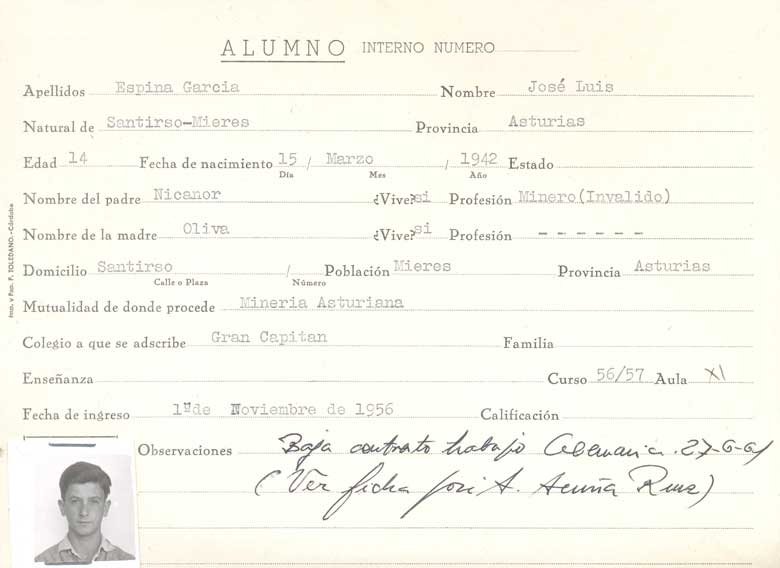 ALUMNO INTERNO NUMERO
Apellidos Espina Garcia Nombre José Luis
Natural de Santirso-Mieres Provincia Asturias
Edad 14 Fecha de nacimiento 15 / Marzo / 1942 Estado
Día Mes Año
Nombre del padre Nicanor ¿Vive? si Profesión Minero(Invalido)
Nombre de la madre Oliva ¿Vive? si Profesión ------
Domicilio Santirso / Población Mieres Provincia Asturias
Calle o Plaza Número
Mutualidad de donde procede Mineria Asturiana
Colegio a que se adscribe Gran Capitan Familia
Enseñanza Curso 56/57 Aula XI
Fecha de ingreso 1º de Noviembre de 1956 Calificación
Observaciones Baja contrato trabajo Alemania. 27-6-61
(Ver ficha José A. Acuña Ruiz)
Imp. y Pap. F. TOLEDANO.-Córdoba